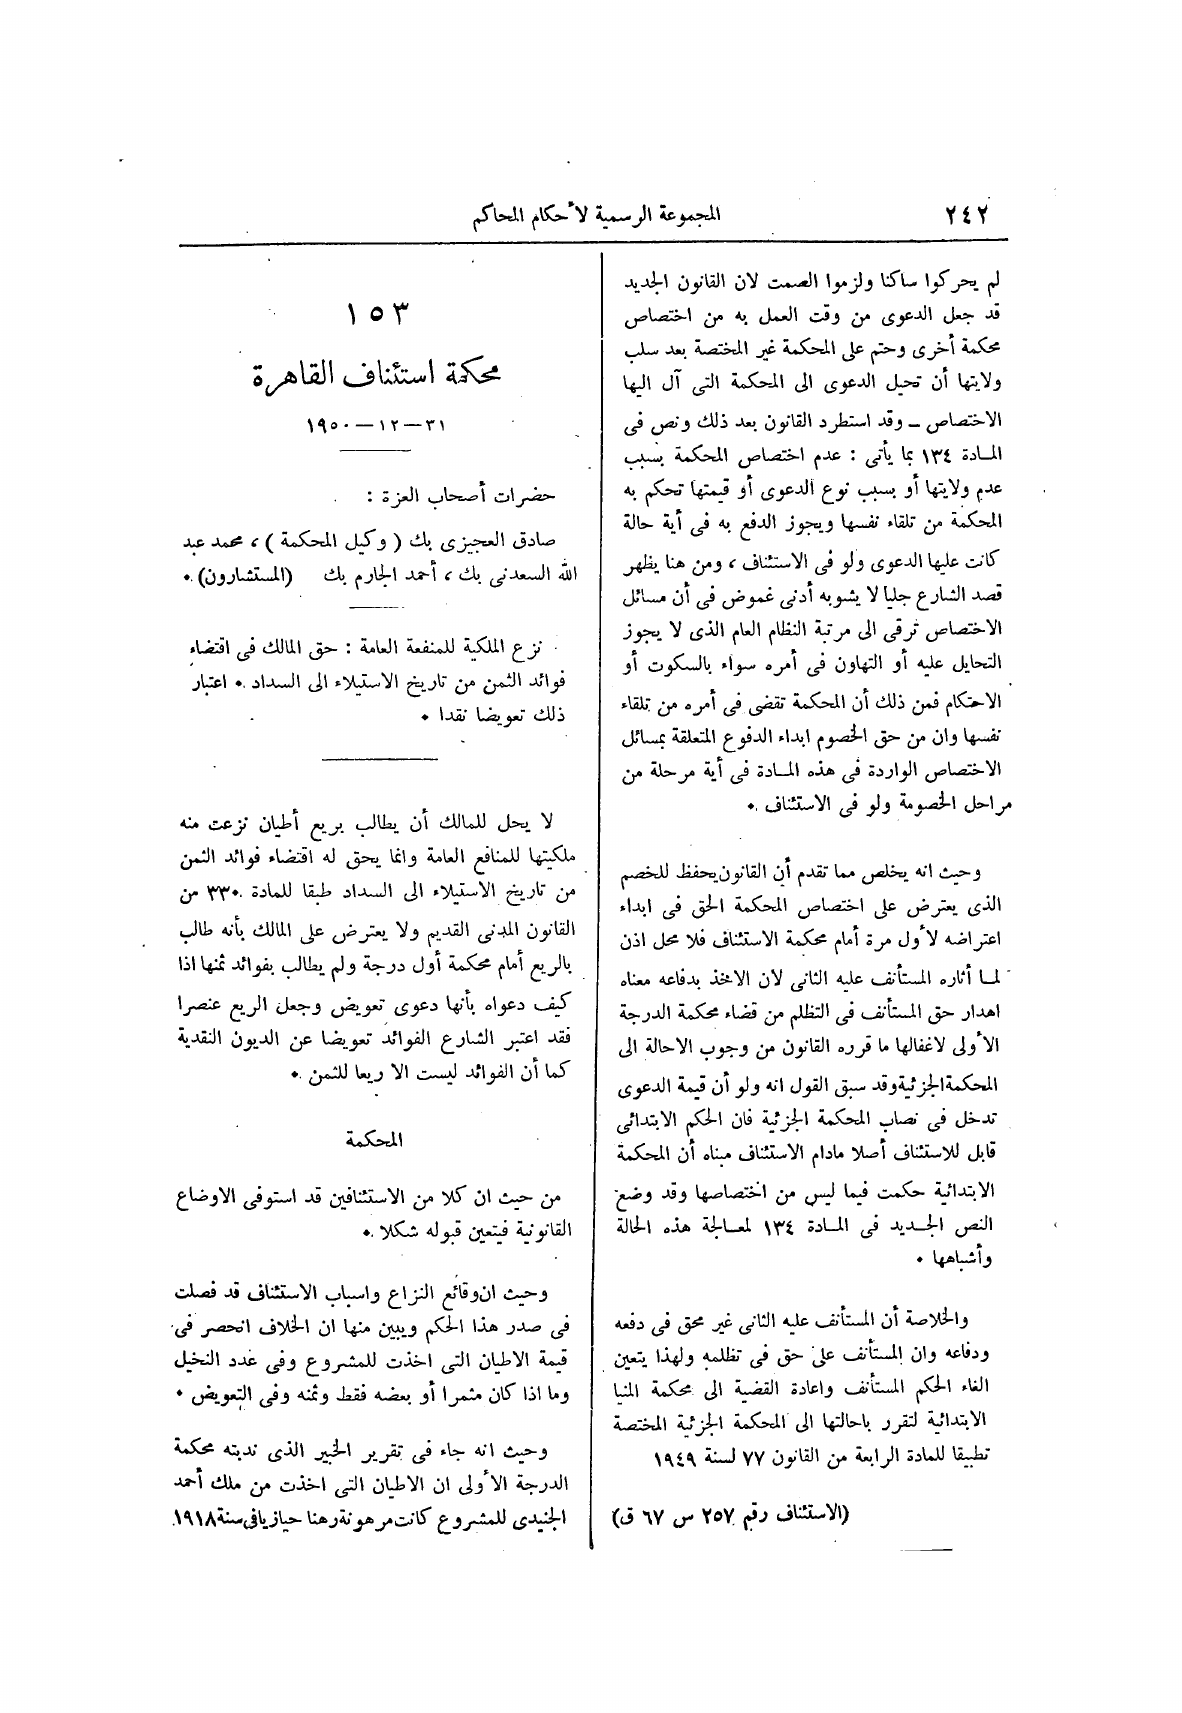 ٢٤٢
المجموعة الرسمية لأحكام المحاكم
لم يحركوا ساكنا ولزموا الصمت لان القانون الجديد
قد جعل الدعوى من وقت العمل به من اختصاص
محكمة أخرى وحتم على المحكمة غير المختصة بعد سلب
ولايتها أن تحيل الدعوى الى المحكمة التى آل اليها
الاختصاص – وقد استطرد القانون بعد ذلك ونص فى
المادة ١٣٤ بما يأتى : عدم اختصاص المحكمة بسبب
عدم ولايتها أو بسبب نوع الدعوى أو قيمتها تحكم به
المحكمة من تلقاء نفسها ويجوز الدفع به فى أية حالة
كانت عليها الدعوى ولو فى الاستئناف ، ومن هنا يظهر
قصد الشارع جليا لا يشوبه أدنى غموض فى أن مسائل
الاختصاص ترقى الى مرتبة النظام العام الذى لا يجوز
التحايل عليه أو التهاون فى أمره سواء بالسكوت أو
الاحتكام فمن ذلك أن المحكمة تقضى فى أمره من تلقاء
نفسها وان من حق الخصوم ابداء الدفوع المتعلقة بمسائل
الاختصاص الواردة فى هذه المادة فى أية مرحلة من
مراحل الخصومة ولو فى الاستئناف .
وحيث انه يخلص مما تقدم أن القانون يحفظ للخصم
الذى يعترض على اختصاص المحكمة الحق فى ابداء
اعتراضه لأول مرة أمام محكمة الاستئناف فلا محل اذن
لما أثاره المستأنف عليه الثانى لان الاخذ بدفاعه معناه
اهدار حق المستأنف فى التظلم من قضاء محكمة الدرجة
الأولى لاغفالها ما قرره القانون من وجوب الاحالة الى
المحكمة الجزئية وقد سبق القول انه ولو أن قيمة الدعوى
تدخل فى نصاب المحكمة الجزئية فان الحكم الابتدائى
قابل للاستئناف أصلا مادام الاستئناف مبناه أن المحكمة
الابتدائية حكمت فيما ليس من اختصاصها وقد وضع
النص الجديد فى المادة ١٣٤ لمعالجة هذه الحالة
وأشباهها .
والخلاصة أن المستأنف عليه الثانى غير محق فى دفعه
ودفاعه وان المستأنف على حق فى تظلمه ولهذا يتعين
الغاء الحكم المستأنف واعادة القضية الى محكمة المنيا
الابتدائية لتقرر باحالتها الى المحكمة الجزئية المختصة
تطبيقا للمادة الرابعة من القانون ٧٧ لسنة ١٩٤٩
(الاستئناف رقم ٢٥٧ س ٦٧ ق)
١٥٣
محكمة استئناف القاهرة
٣١–١٢–١٩٥٠
حضرات أصحاب العزة :
صادق العجيزى بك ( وكيل المحكمة ) ، محمد عبد
الله السعدنى بك ، أحمد الجارم بك (المستشارون) .
نزع الملكية للمنفعة العامة : حق المالك فى اقتضاء
فوائد الثمن من تاريخ الاستيلاء الى السداد . اعتبار
ذلك تعويضا نقدا .
لا يحل للمالك أن يطالب بريع أطيان نزعت منه
ملكيتها للمنافع العامة وانما يحق له اقتضاء فوائد الثمن
من تاريخ الاستيلاء الى السداد طبقا للمادة ٣٣٠ من
القانون المدنى القديم ولا يعترض على المالك بأنه طالب
بالريع أمام محكمة أول درجة ولم يطالب بفوائد ثمنها اذا
كيف دعواه بأنها دعوى تعويض وجعل الريع عنصرا
فقد اعتبر الشارع الفوائد تعويضا عن الديون النقدية
كما أن الفوائد ليست الا ريعا للثمن .
المحكمة
من حيث ان كلا من الاستئنافين قد استوفى الاوضاع
القانونية فيتعين قبوله شكلا .
وحيث ان وقائع النزاع واسباب الاستئناف قد فصلت
فى صدر هذا الحكم ويبين منها ان الخلاف انحصر فى
قيمة الاطيان التى اخذت للمشروع وفى عدد النخيل
وما اذا كان مثمرا أو بعضه فقط وثمنه وفى التعويض .
وحيث انه جاء فى تقرير الخبير الذى ندبته محكمة
الدرجة الأولى ان الاطيان التى اخذت من ملك أحمد
الجنيدى للمشروع كانت مرهونة رهنا حيازيا فى سنة ١٩١٨